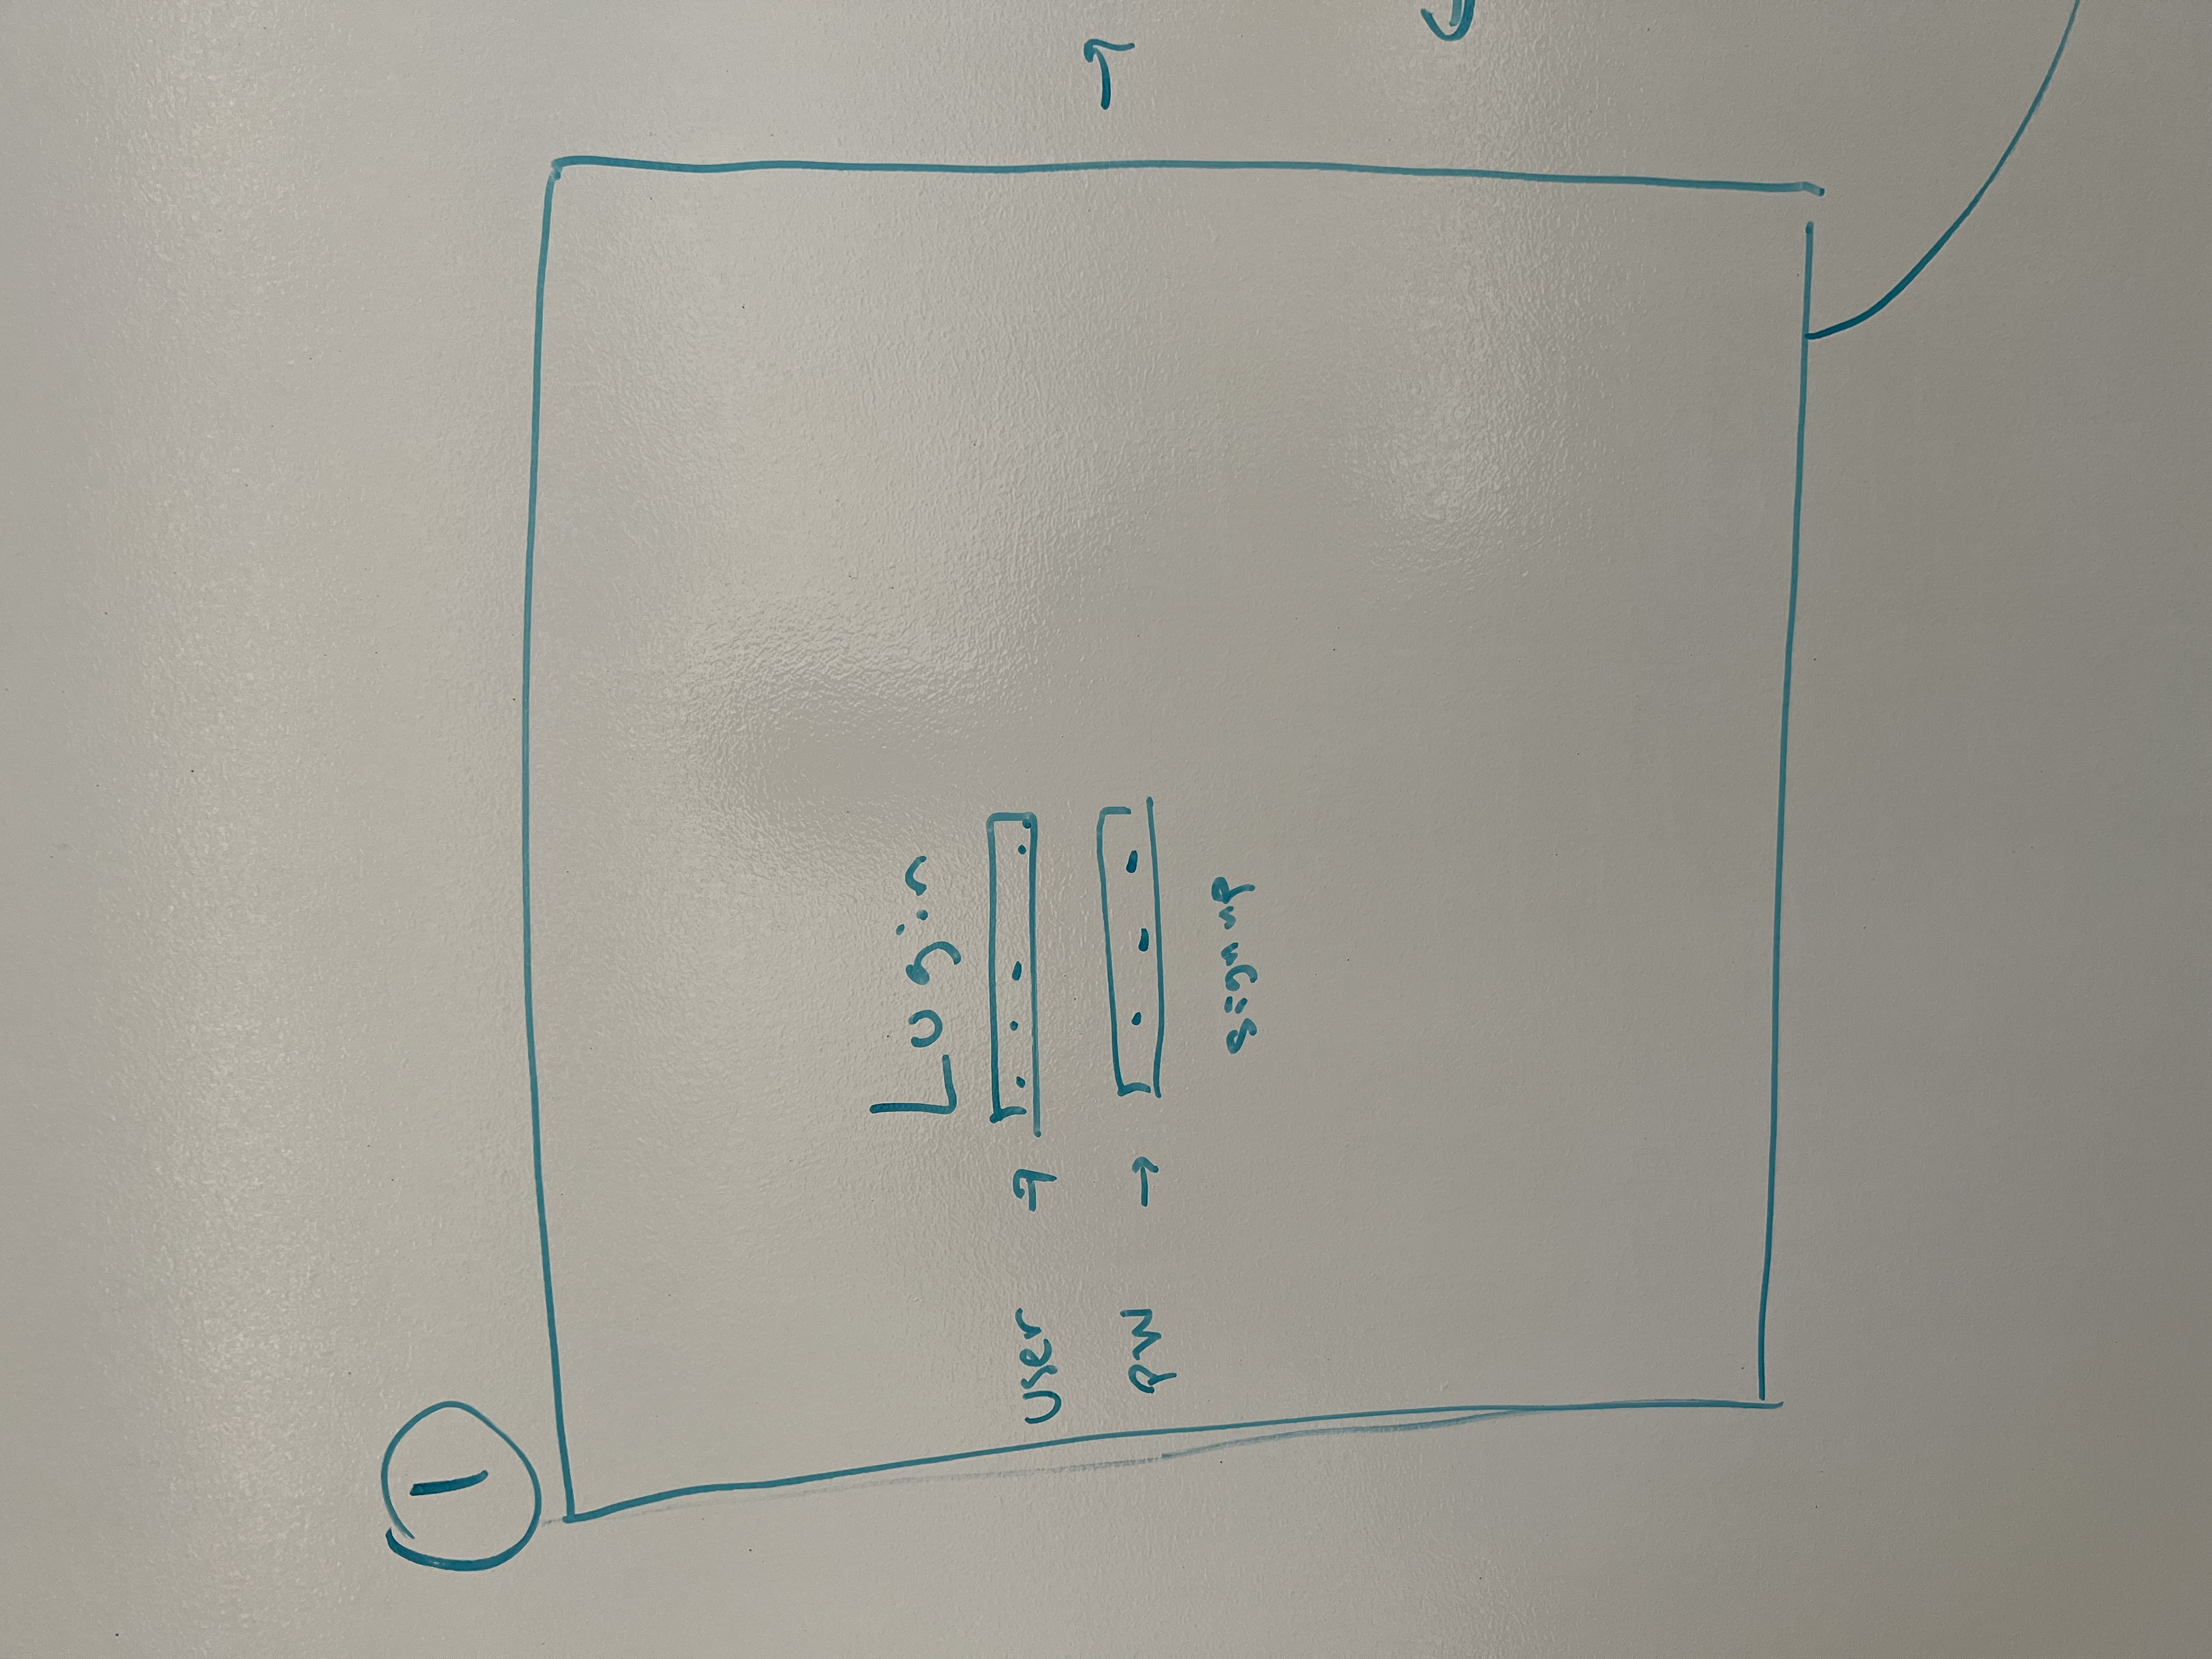 1
Login
User →
PW →
sign up
→